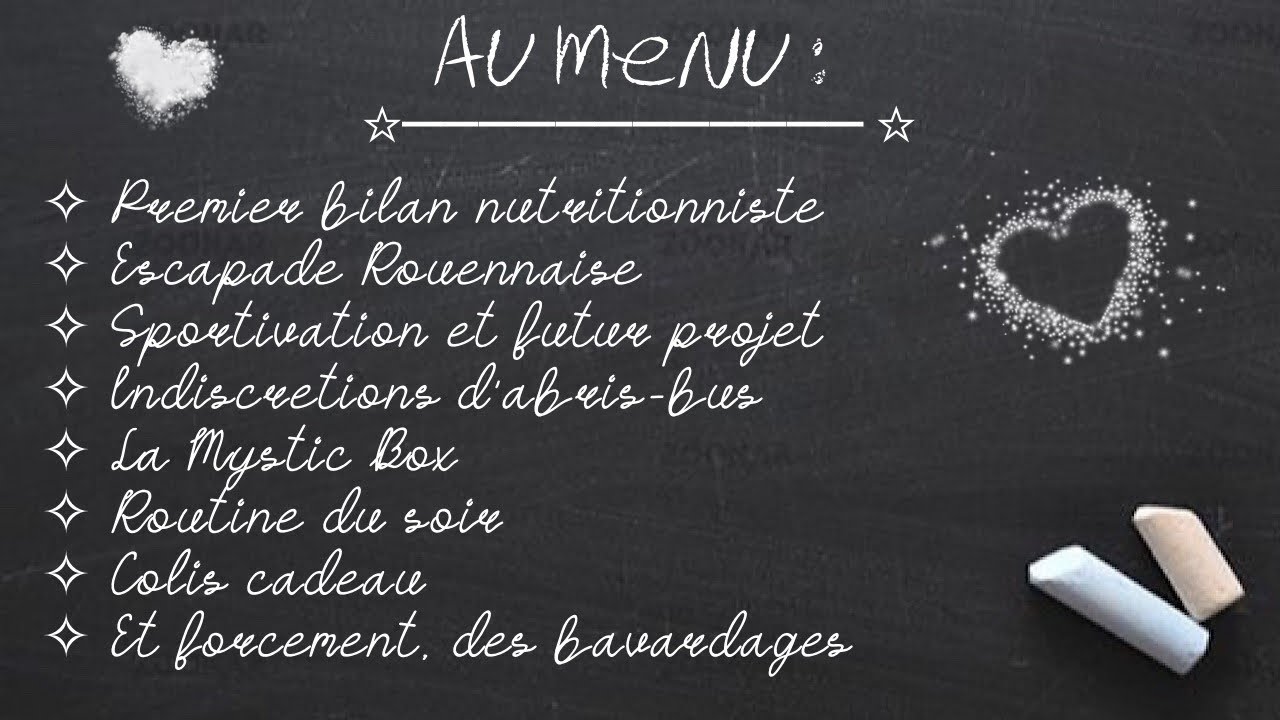 AU MENU :
Premier bilan nutritionniste
Escapade Rouennaise
Sportivation et futur projet
Indiscretions d'abris-bus
La Mystic Box
Routine du soir
Colis cadeau
Et forcement, des bavardages